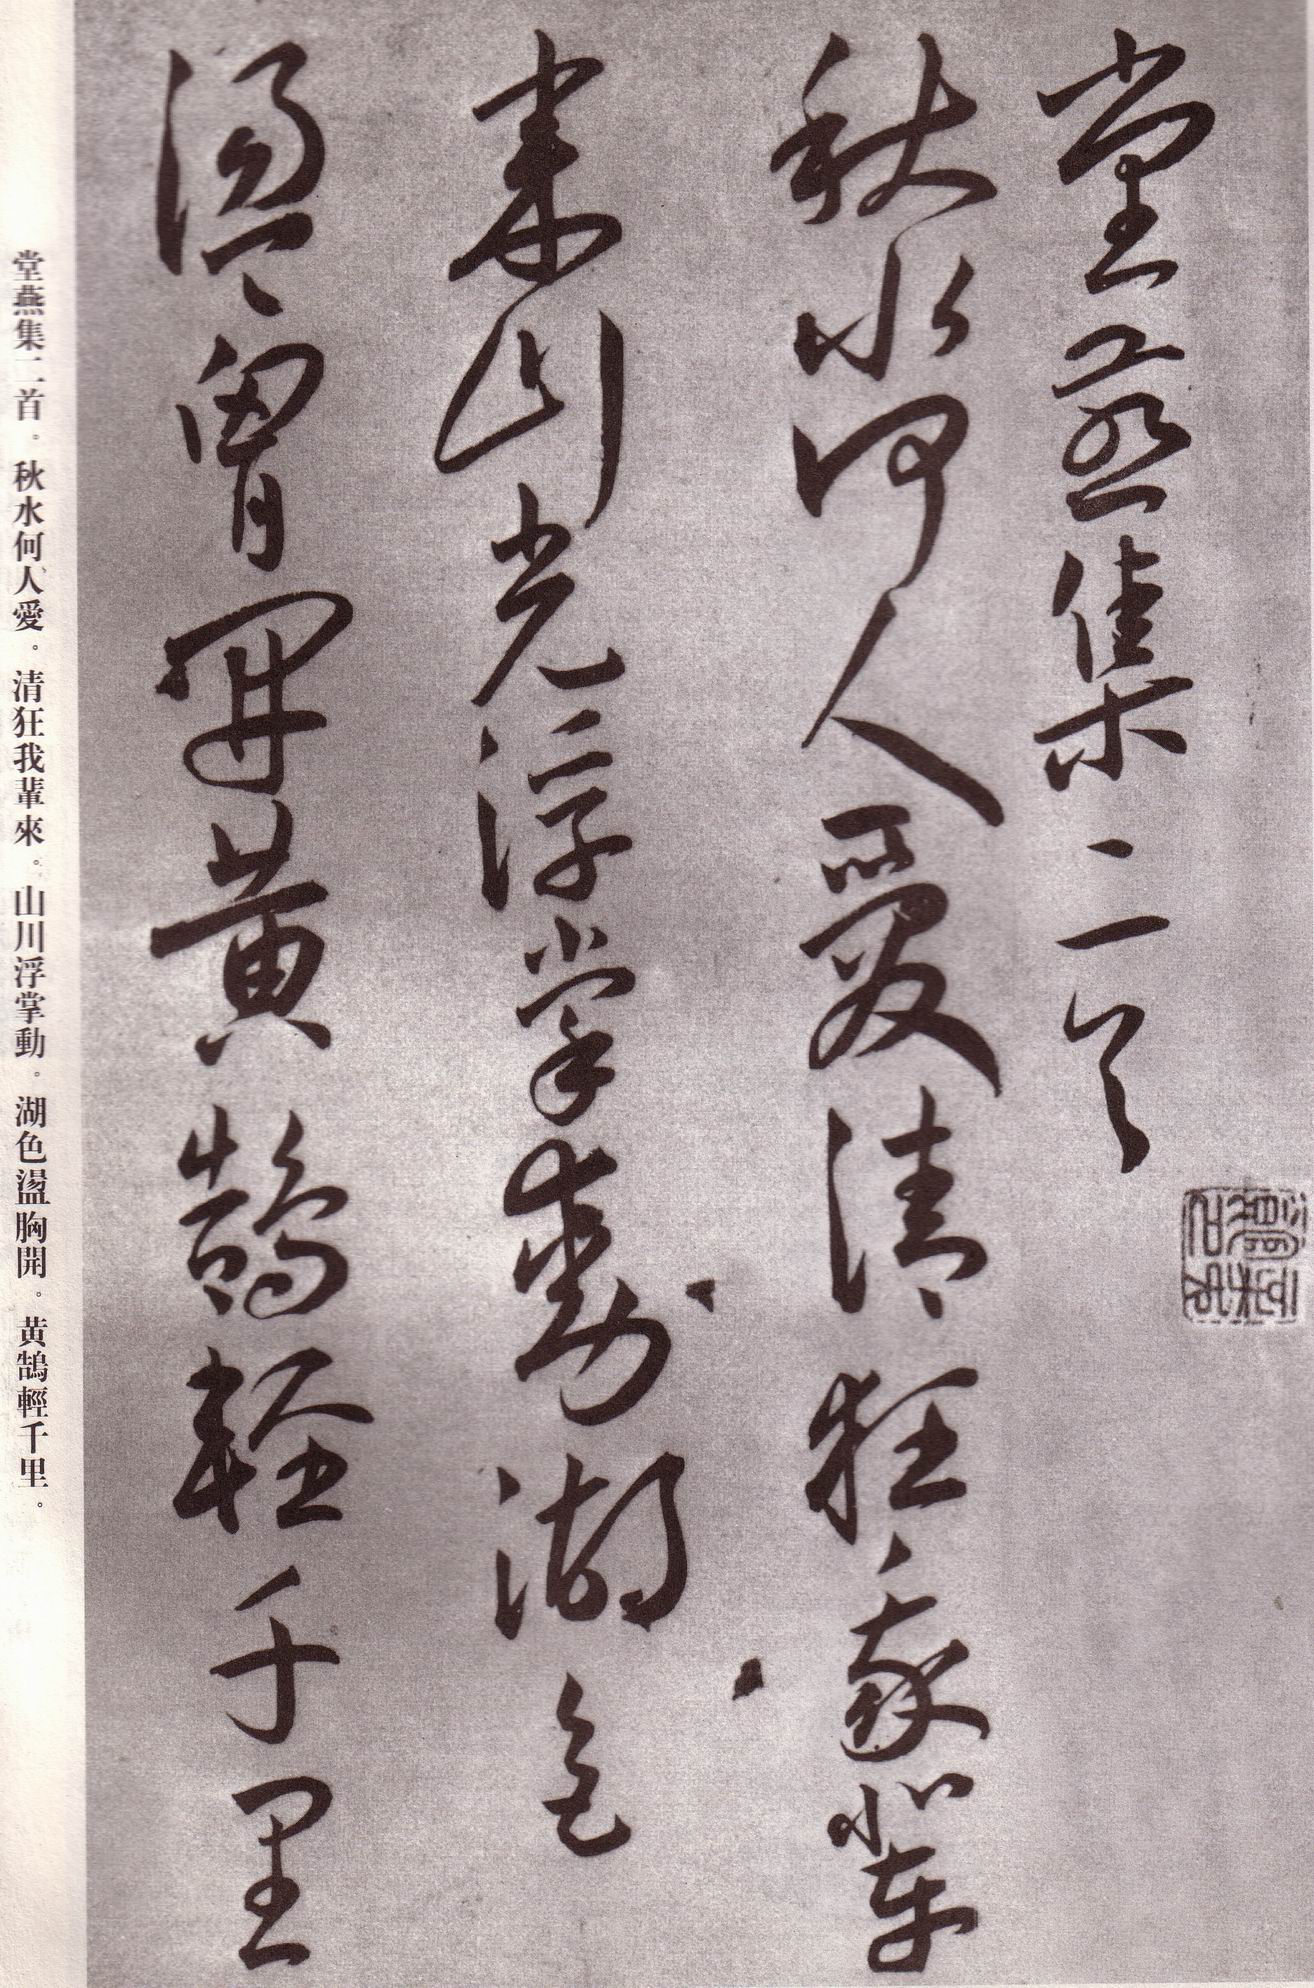 堂燕集二首
秋水何人愛清狂我輩
来山光浮掌動湖色
盪胷開黄鵠輕千里
堂燕集二首。秋水何人愛。清狂我輩來。山川浮掌動。湖色盪胸開。黄鵠輕千里。